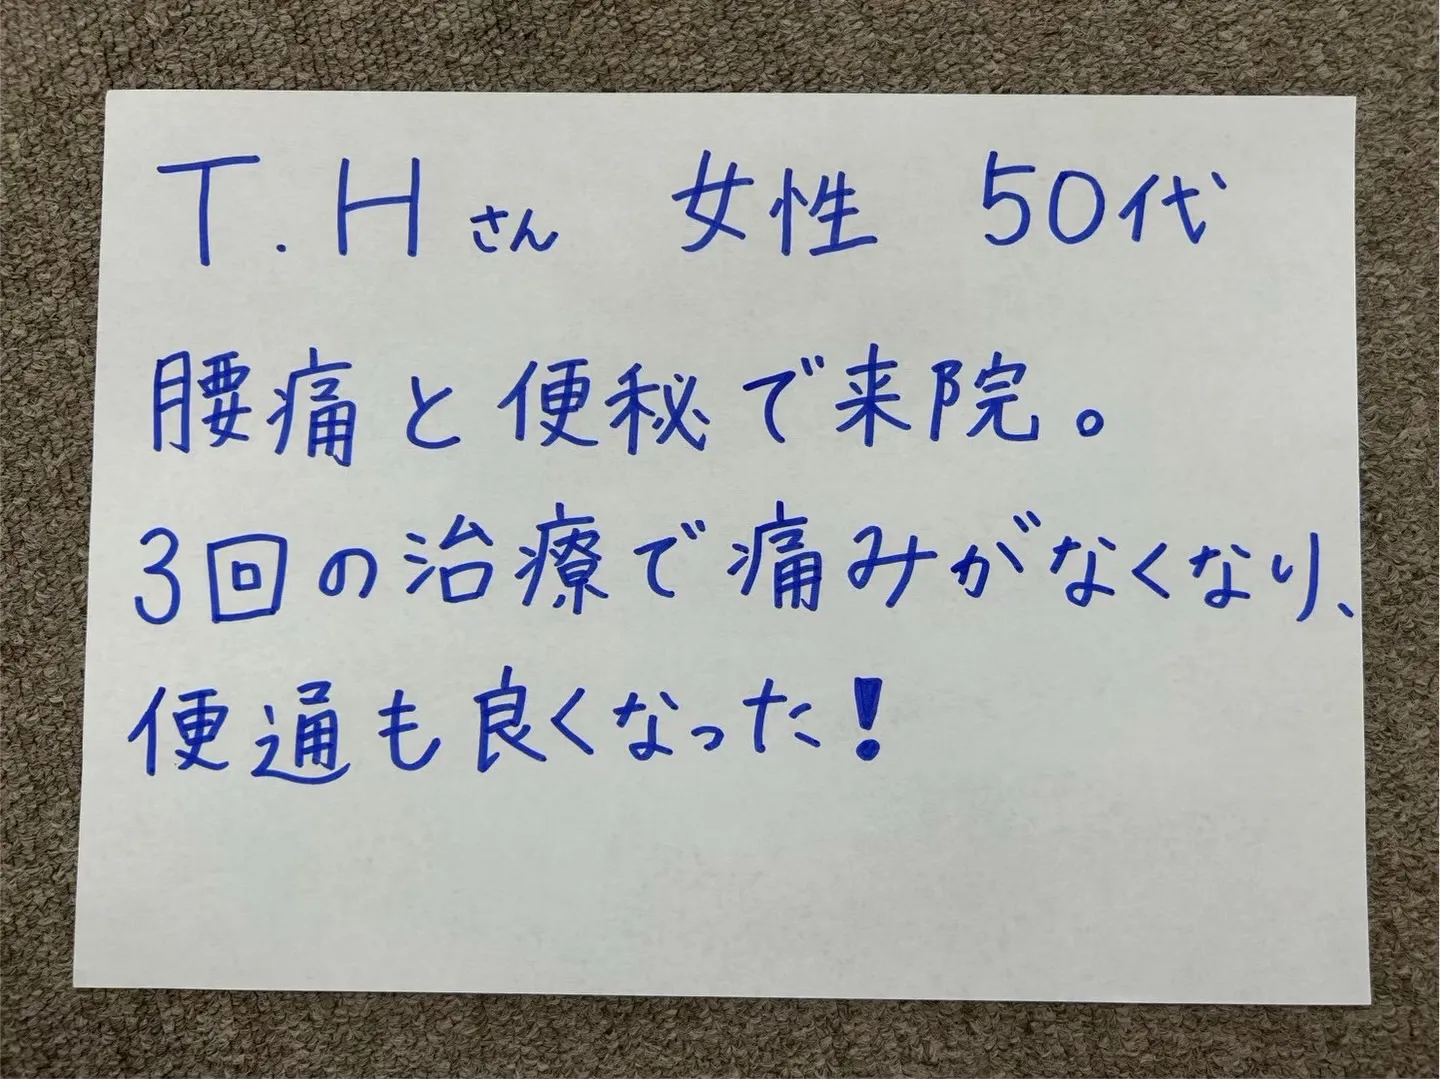 T.Hさん 女性 50代
腰痛と便秘で来院。
3回の治療で痛みがなくなり、
便通も良くなった!